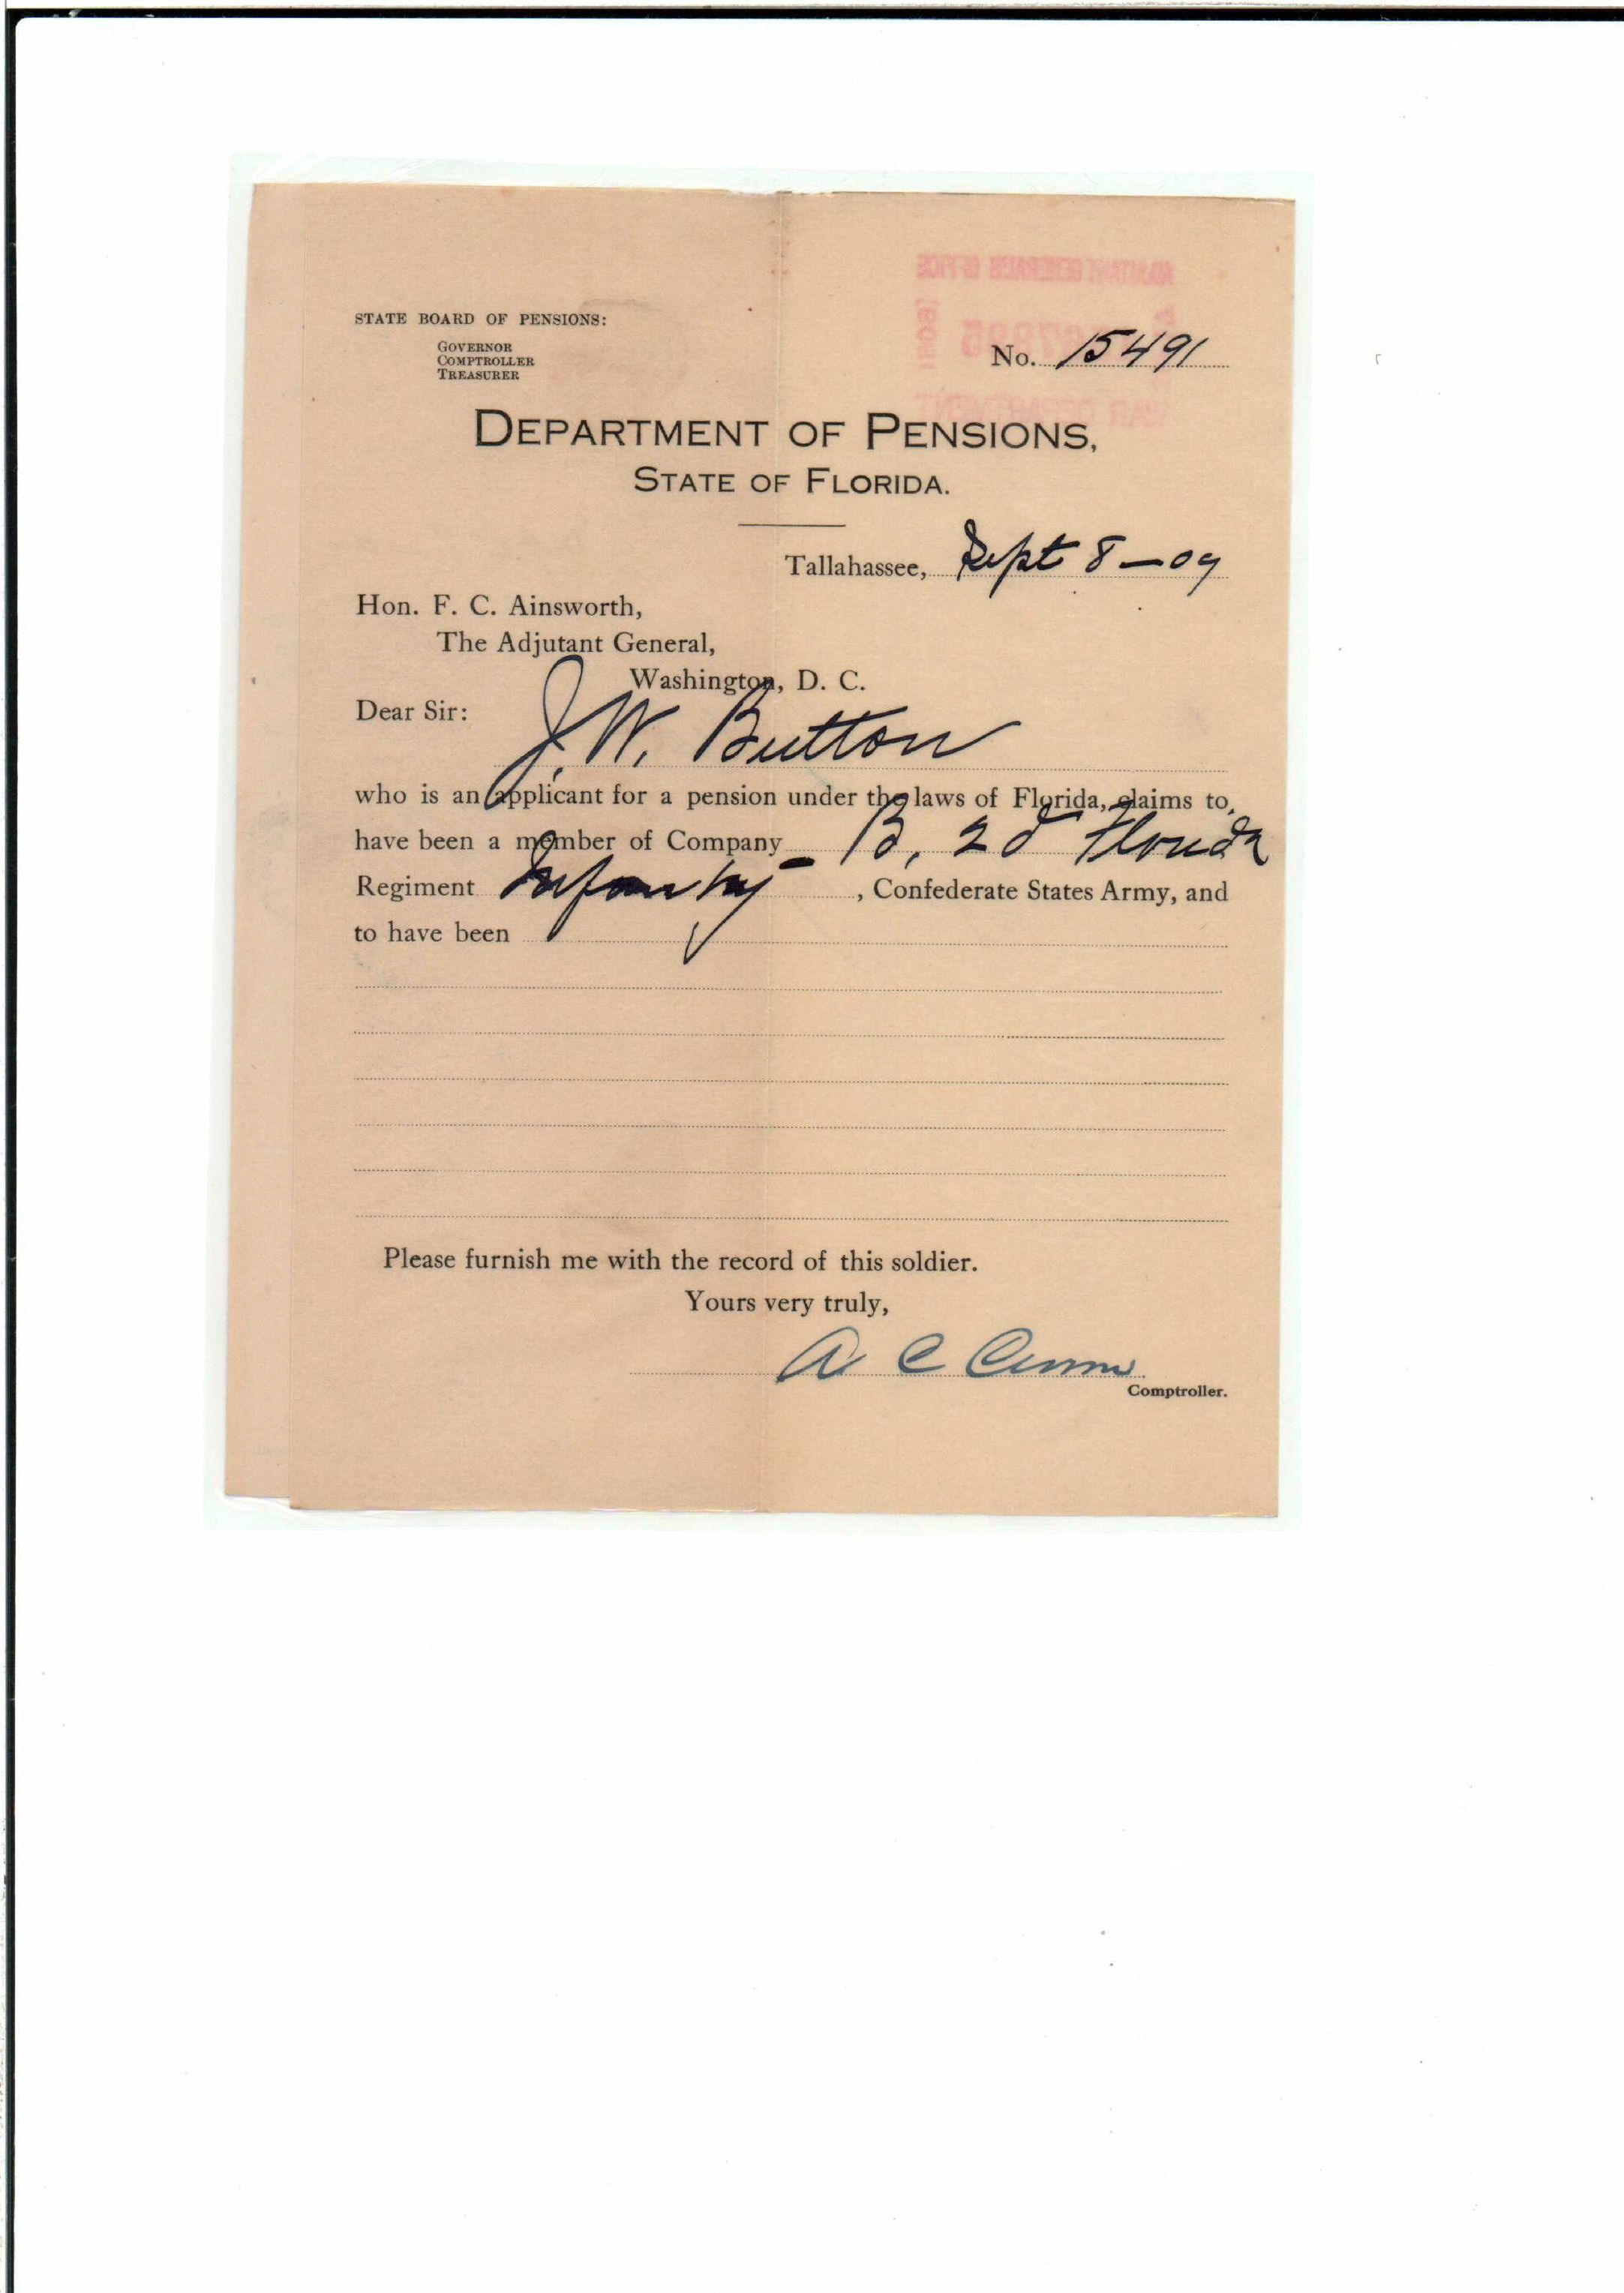 STATE BOARD OF PENSIONS:
GOVERNOR
COMPTROLLER
TREASURER
No. 15491
DEPARTMENT OF PENSIONS,
STATE OF FLORIDA.
Tallahassee, Sept 8-09
Hon. F. C. Ainsworth,
The Adjutant General,
Washington, D. C.
Dear Sir:
J. W. Button
who is an applicant for a pension under the laws of Florida, claims to
have been a member of Company B, 2d Florida
Regiment Infantry, Confederate States Army, and
to have been
Please furnish me with the record of this soldier.
Yours very truly,
A C Croom
Comptroller.
ADJUTANT GENERAL'S OFFICE
WAR DEPARTMENT